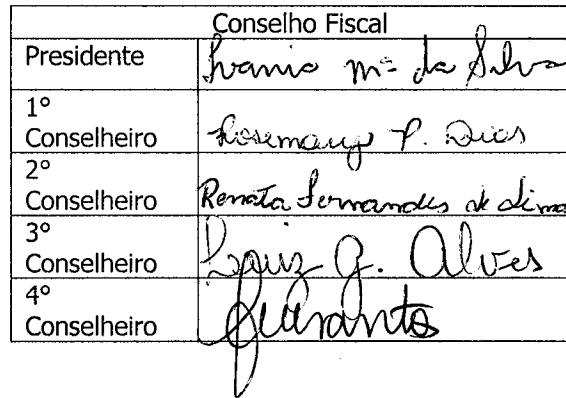 Conselho Fiscal
Presidente Ivania Mª da Silva
1º
Conselheiro Rosemary P. Dias
2º
Conselheiro Renata Fernandes de Lima
3º
Conselheiro Luiz G. Alves
4º
Conselheiro